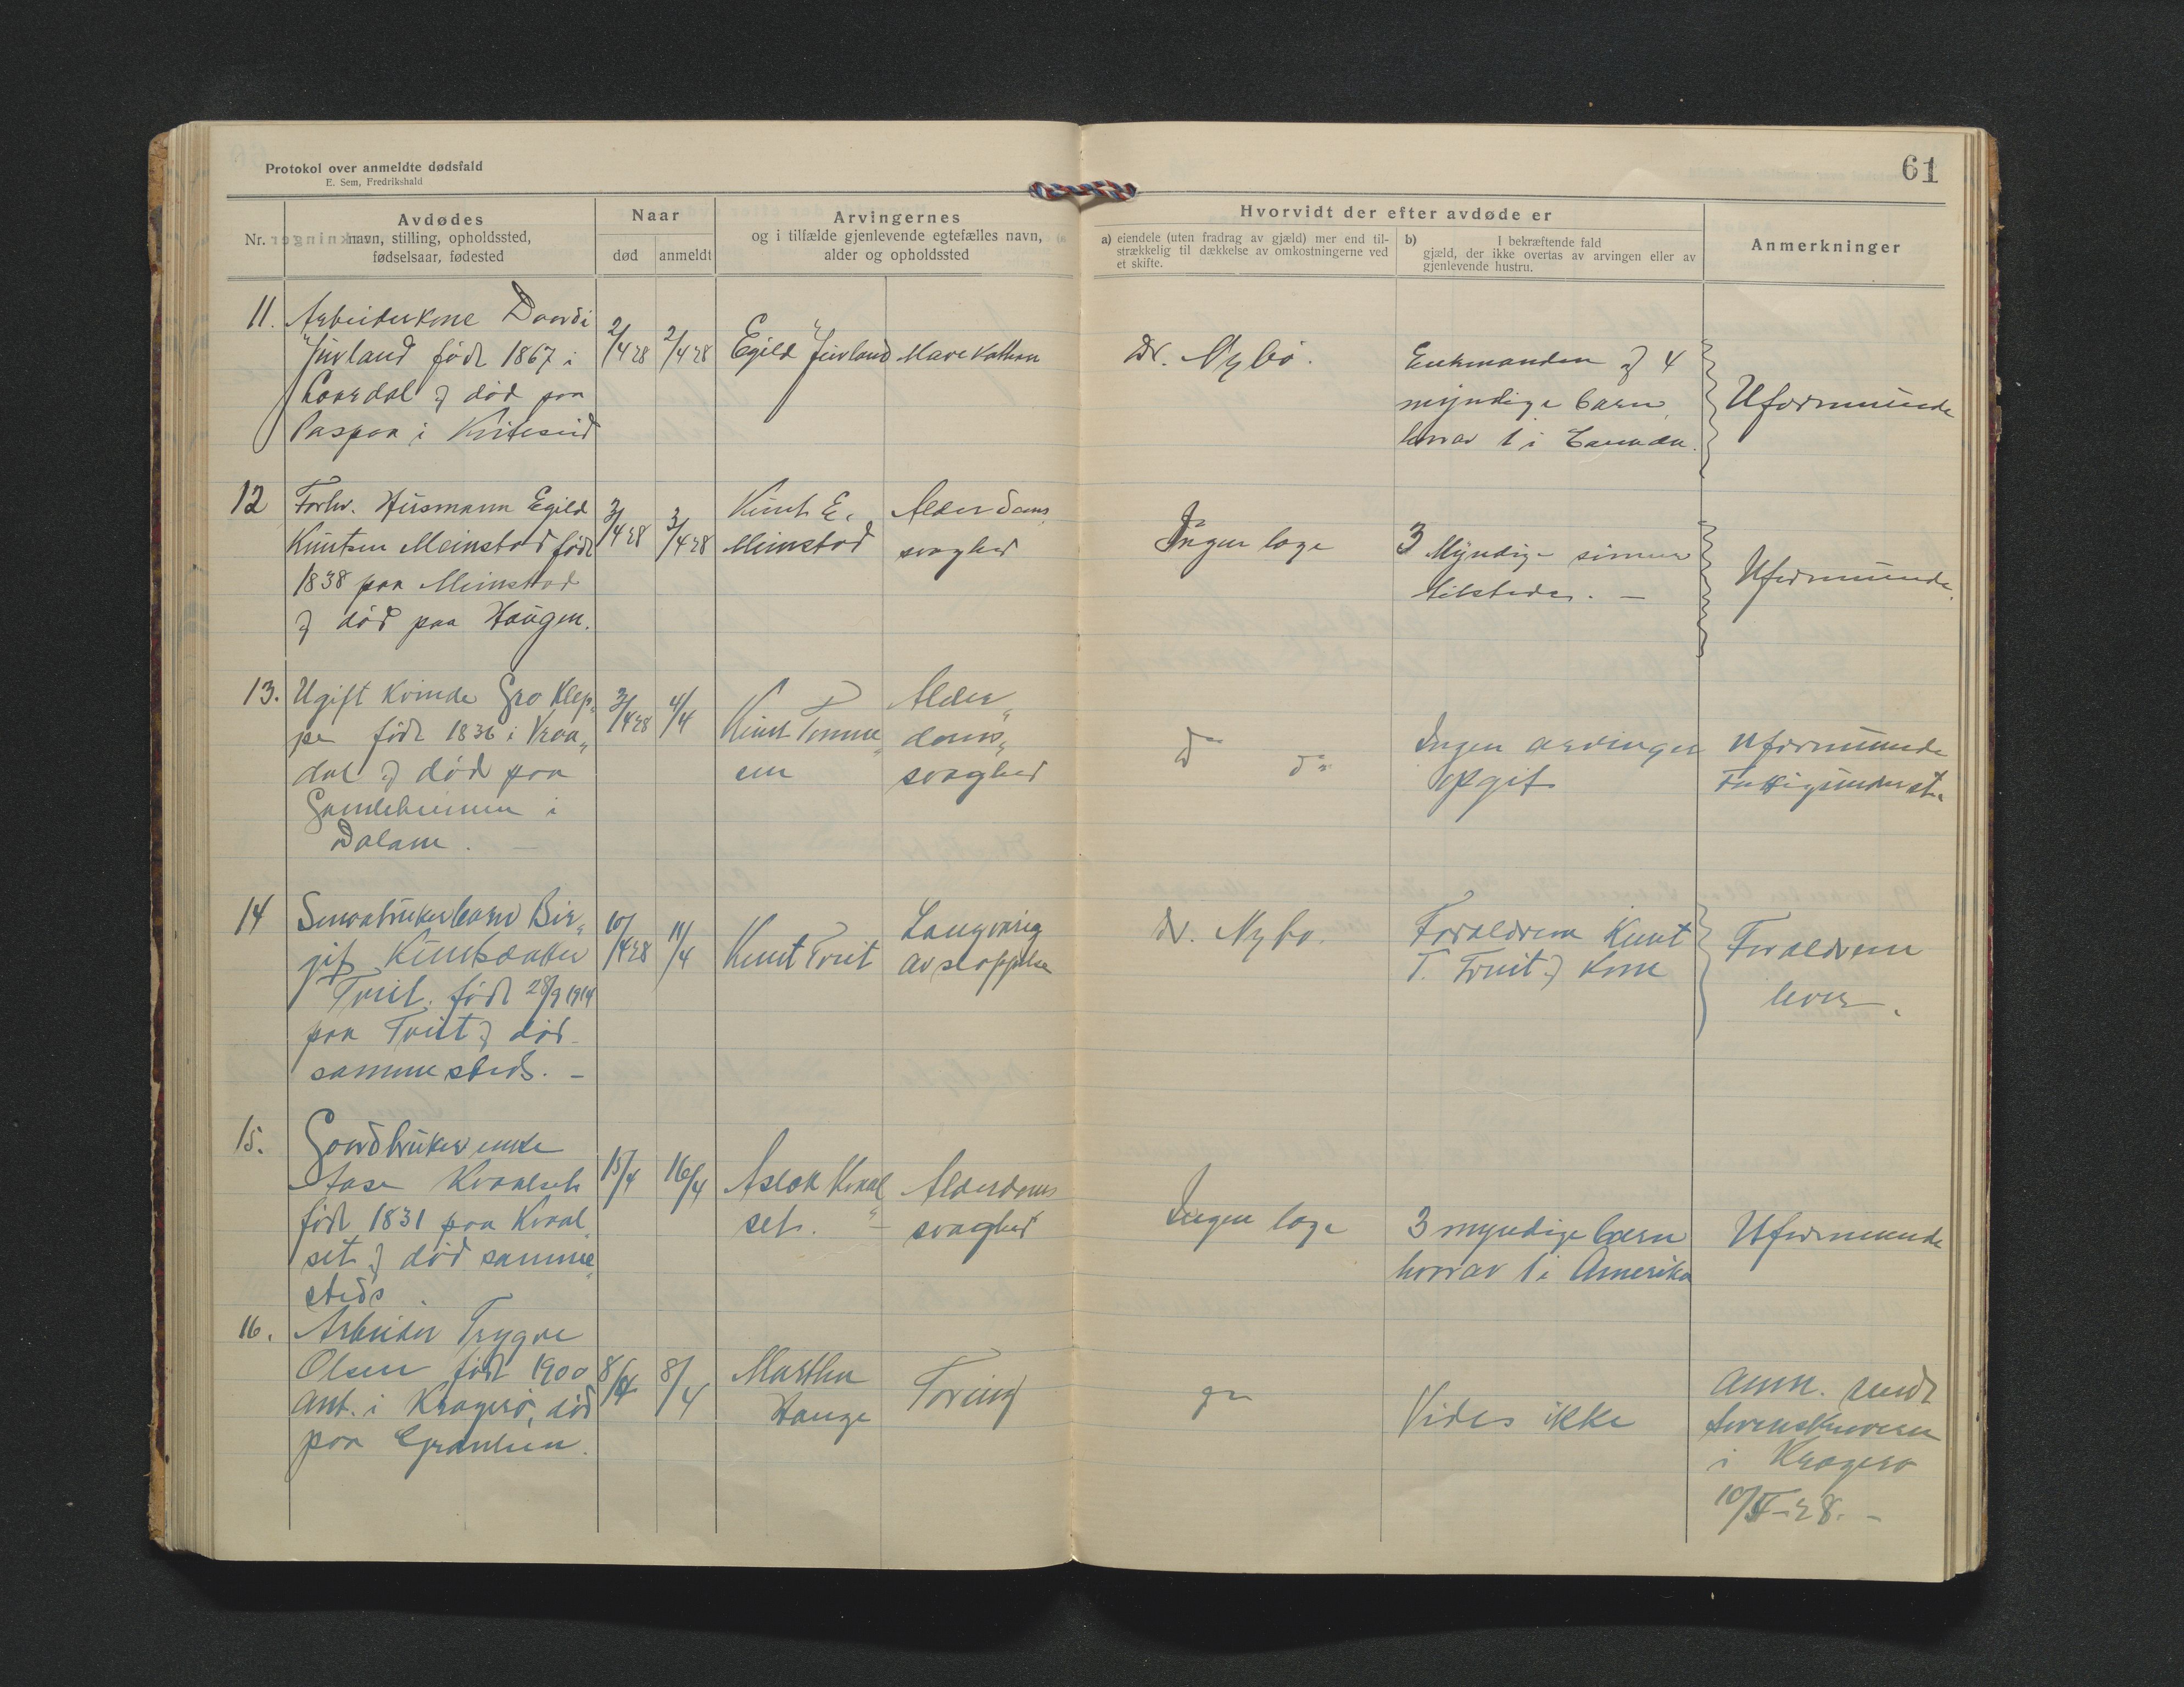 Protokol over anmeldte dødsfald
E. Sem, Fredrikshald
61
Nr.
Avdødes
navn, stilling, opholdssted,
fødselsaar, fødested
Naar
død
anmeldt
Arvingernes
og i tilfælde gjenlevende egtefælles navn,
alder og opholdssted
Hvorvidt der efter avdøde er
a) eiendele (uten fradrag av gjæld) mer end til-
strækkelig til dækkelse av omkostningerne ved
et skifte.
b) I bekræftende fald
gjæld, der ikke overtas av arvingen eller av
gjenlevende hustru.
Anmerkninger
11. Arbeiderkone
Juvland født 1867 i
død paa
i Kviteseid
2/4 28
2/4 28
Egild Juvland
Dr. Nybø.
Enkemanden og 4
myndige barn,
hvorav 1 i
Uformuende
12 Forhv. Husmann Egild
Knutsen Meinstad født
1838 paa Meinstad
og død paa Haugen.
3/4 28
3/4 28
Knut E.
Meinstad
Alderdoms
svaghed
Ingen læge
3 Myndige sønner
tilstede. —
Uformuende.
13. Ugift Kvinde Gro Klep„
pe født 1836 i Kraa„
dal og død paa
Gamleheimen i
Dalane. —
3/4 28
4/4
Knut Tomme„
sen
Alder„
doms„
svaghed
do do
Ingen arvinger
opgit
Uformuende
Fattigunderst.
14 Smaabrukerbarn Bir„
git Knutsdatter
Tveit. født 28/9 1914
paa Tveit og død
sammesteds. —
10/4 28
11/4
Knut Tveit
Langvarig
Dr. Nybø.
Forældrene Knut
T. Tveit og Kone
Forældrene
lever.
15. Gaardbrukerenke
Aase Kvaalset
født 1831 paa Kvaal„
set og død samme„
steds.
15/4
16/4
Aslak Kvaal„
set. —
Alderdoms
svaghed
Ingen læge
3 myndige barn
hvorav 1 i Amerika
Uformuende
16. Arbeider Trygve
Olsen født 1900
ant. i Kragerø, død
paa
8/4
8/4
Martha
Hauge
Vides ikke
Anm. sendt
Sorenskriveren
i Kragerø
28. —